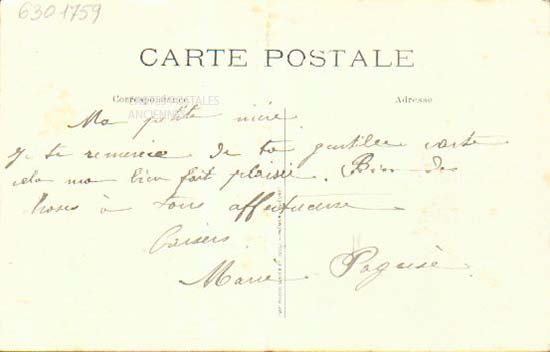 6301759
CARTE POSTALE
Correspondance
Adresse
CARTES POSTALES
ANCIENNES
Ma petite nièce
Je te remercie de ta gentille carte
cela ma bien fait plaisir. Bien des
choses à tous affectueux
baisers.
Marie